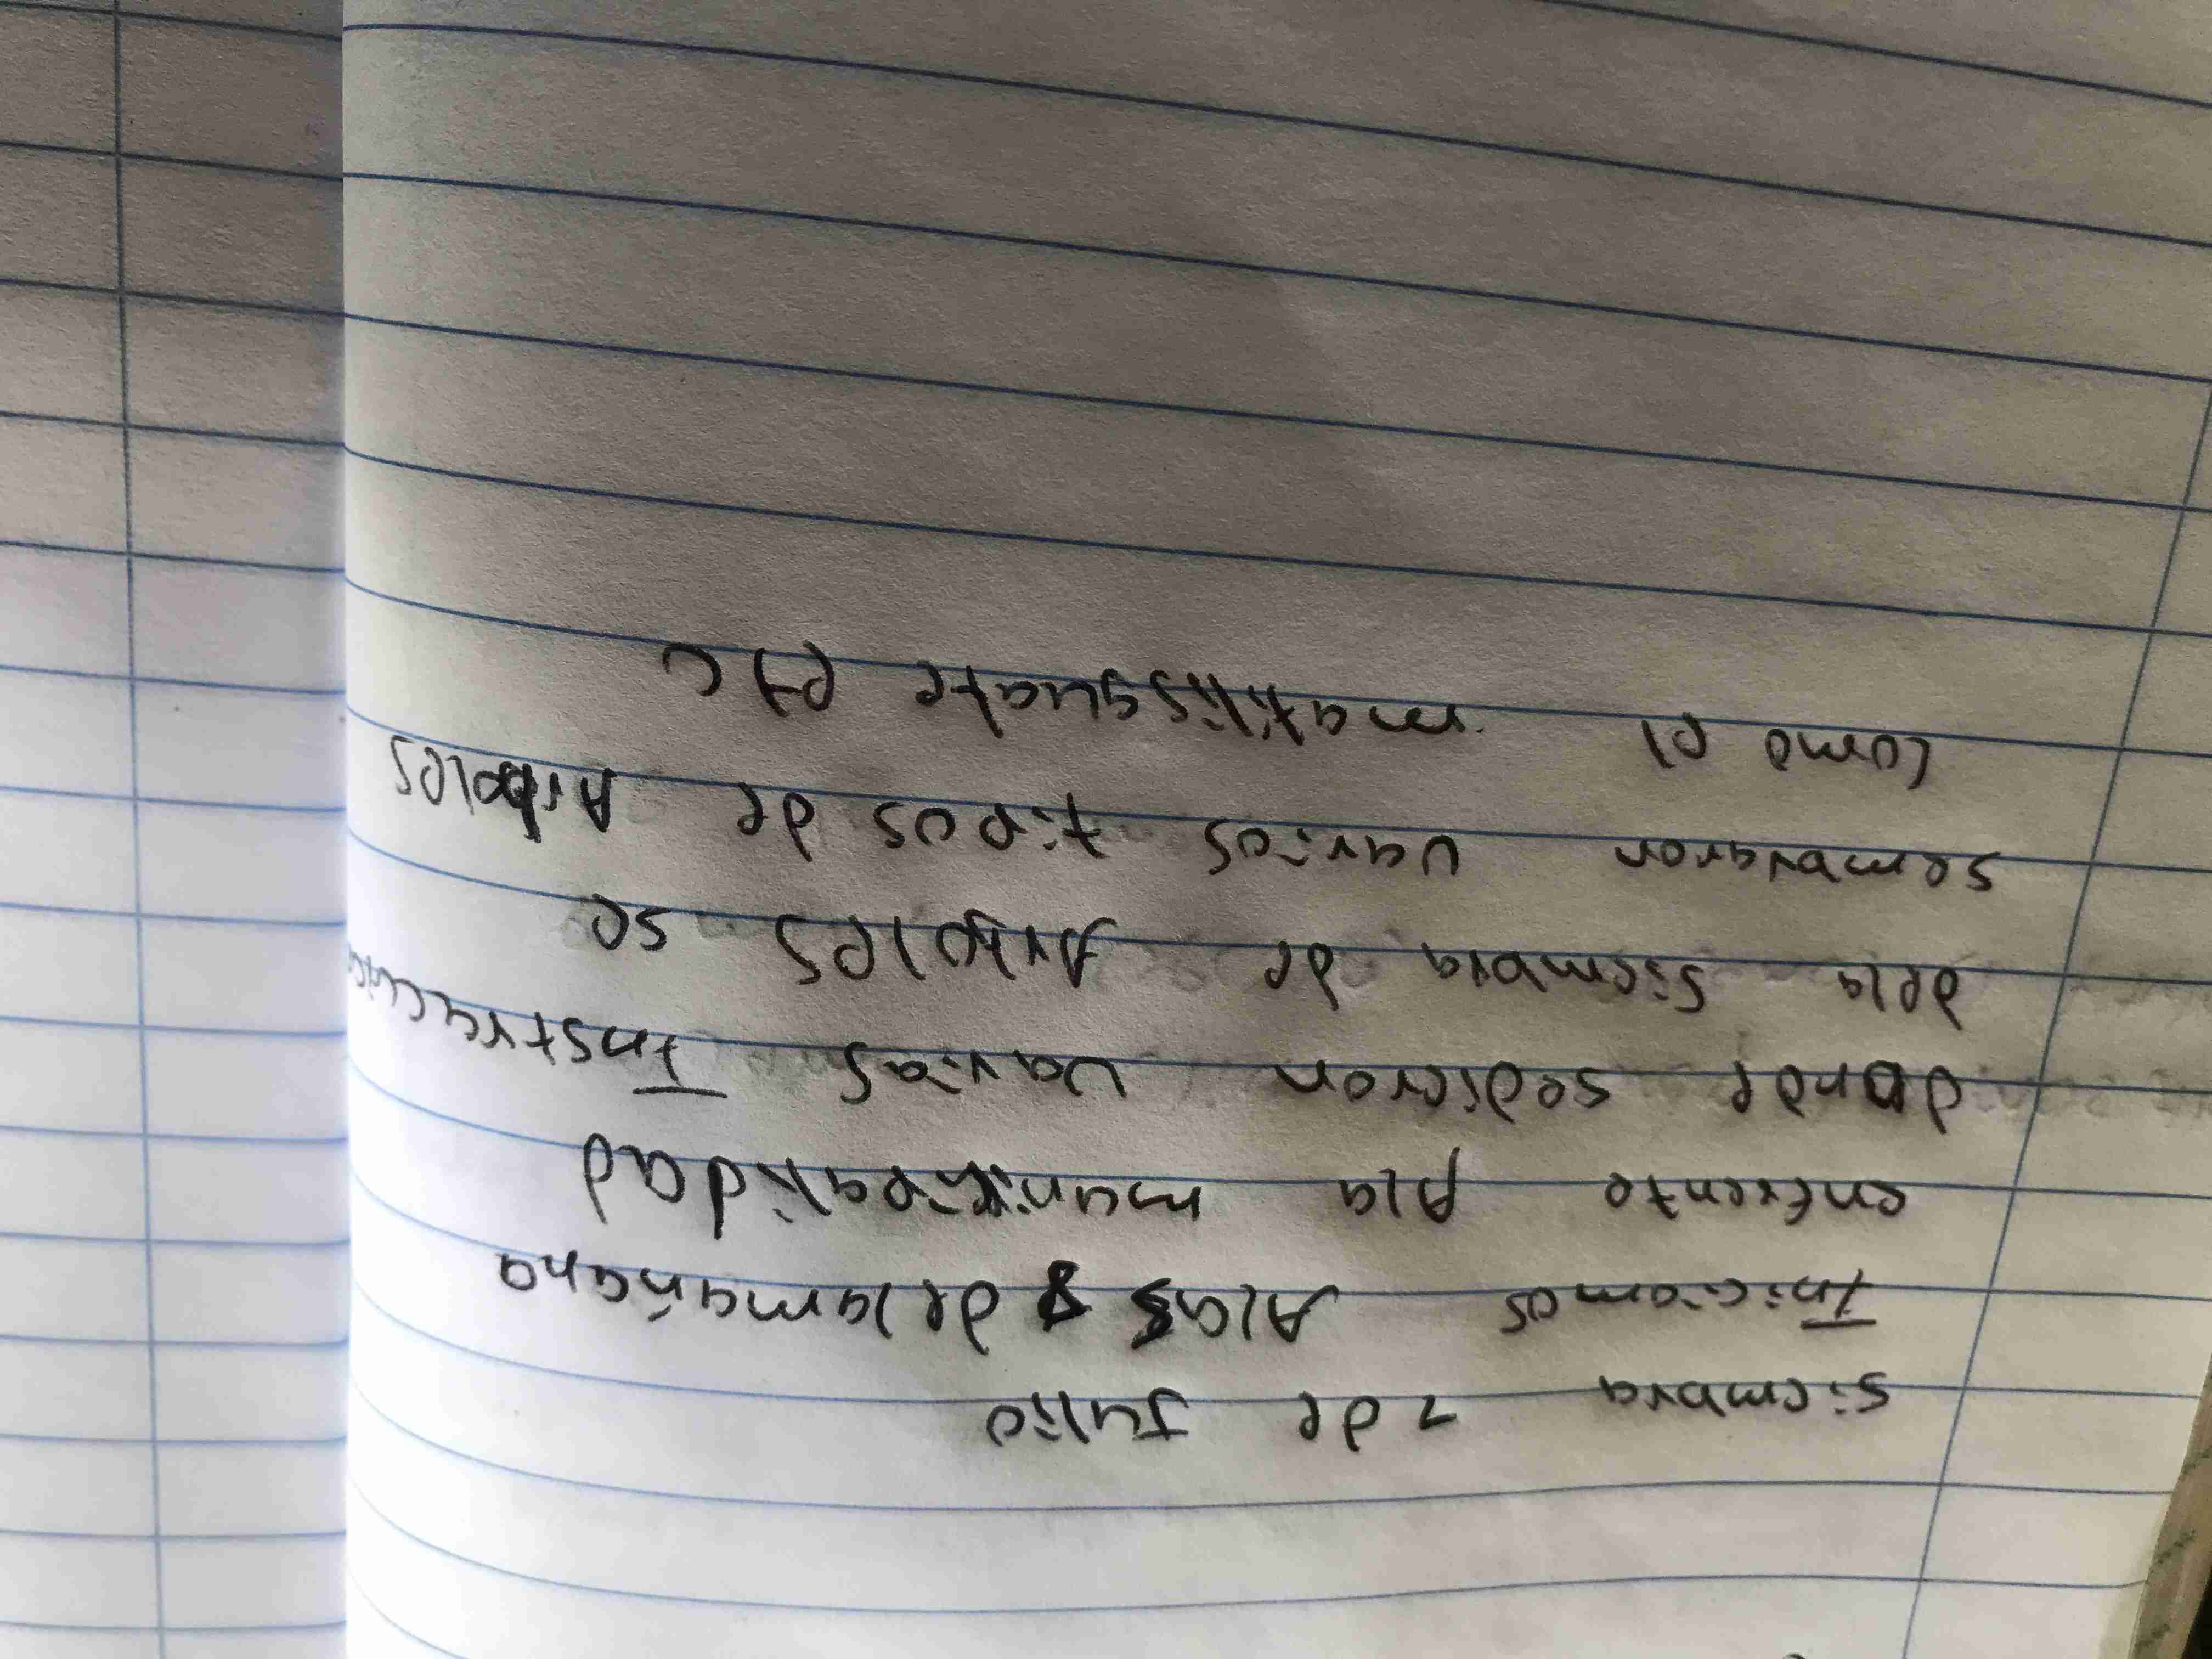 siembra 2 de Julio
Iniciamos Alas 8 de lamañana
enfrente Ala municipalidad
donde sedieron varias Instrucc
dela siembra de Arboles se
sembraron varios tipos de Arboles
como el matilisguate etc